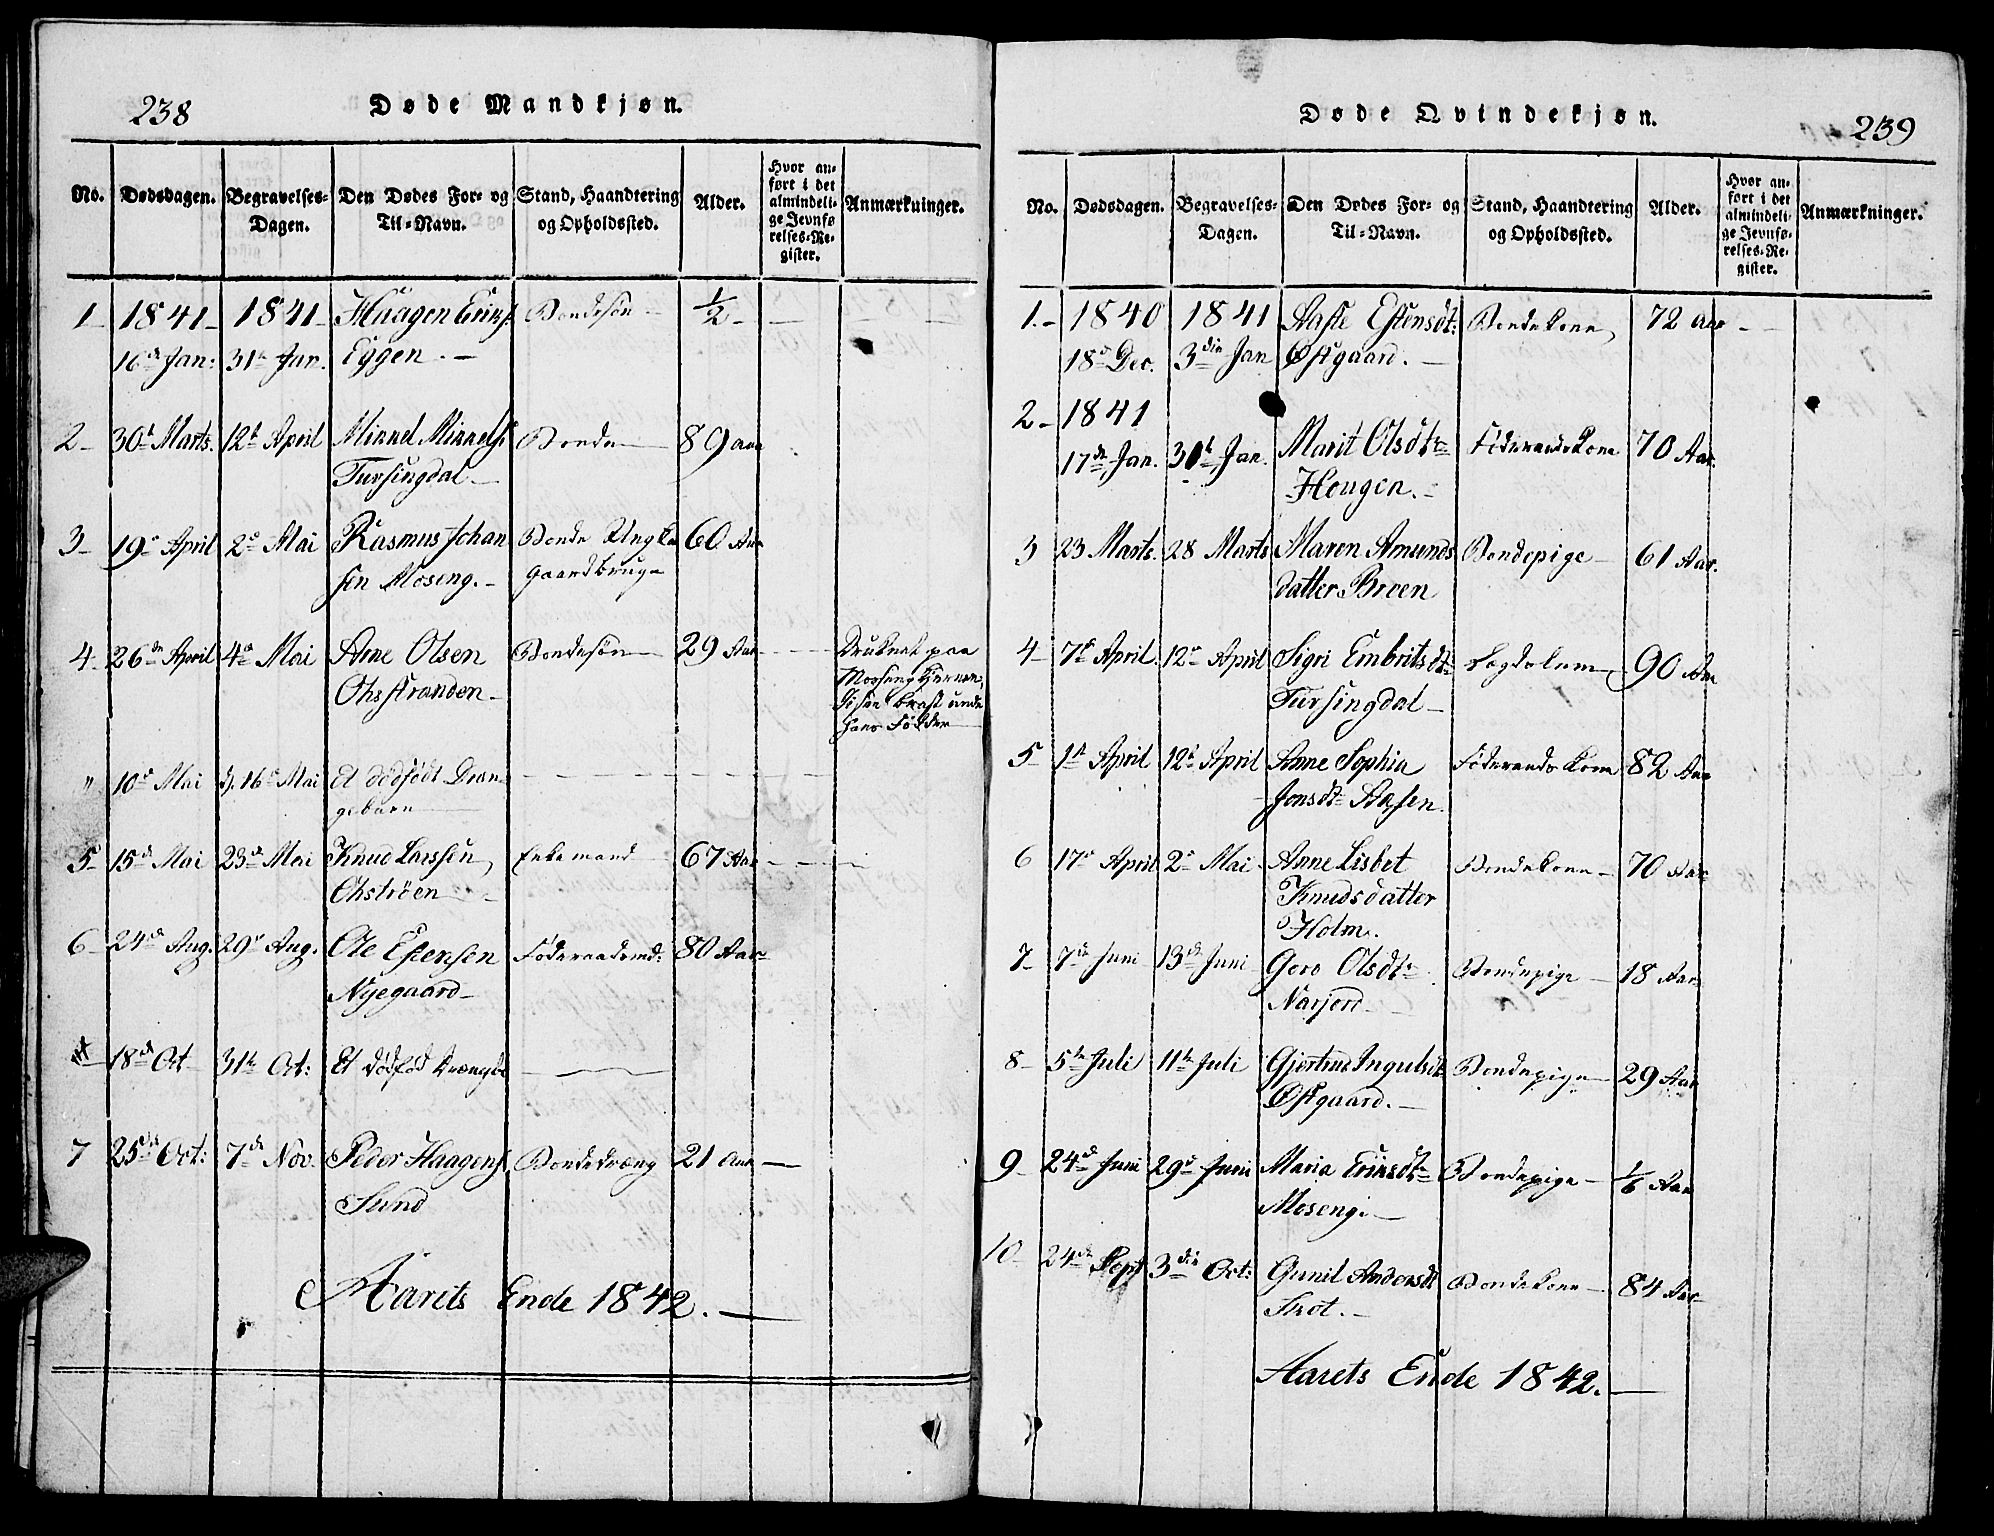 238
Døde Mandkjøn.
No. Dødsdagen. Begravelses-Dagen. Den Dødes For- og Til-Navn. Stand, Haandtering og Opholdssted. Alder. Hvor anført i det almindelige Jevnførelses-Register. Anmærkninger.
1 1841 1841 Haagen Erichs. Bondesøn ½
16de Jan: 31te Jan. Eggen.
2 30te Marts. 12te April Mikkel Mikkels. Bonde 89 Aar
Tufsingdal
3 19de April 2den Mai Rasmus Johan Bonde 60 Aar
sen Moseng. Gaardbrug
4 26de April 4de Mai Arne Olsen Bondesøn 29 Aar Druknet paa
Ohsstranden
Isen brast under
hans Fødder
" 10de Mai d. 16de Mai Et dødfødt Dren
gebarn
5 15de Mai 23de Mai Knud Larssen, Enkemand 67 Aar
Ohstrøen
6 24de Aug. 29de Aug. Ole Estensen Føderaadsmd: 80 Aar
Nyegaard
18de Oct 31te Oct: Et dødfød
7 25de Oct: 7de Nov. Peder Haagens. Bondedræng 21 Aar
Sund
Aarets Ende 1842.
239
Døde Qvindekjøn.
No. Dødsdagen. Begravelses-Dagen. Den Dødes For- og Til-Navn. Stand, Haandtering og Opholdssted. Alder. Hvor anført i det almindelige Jevnførelses-Register. Anmærkninger.
1. 1840 1841 Aaste Estensdt: Bondekone, 72 Aar
18de Dec. 3die Jan Østgaard.
2 1841
17de Jan. 30te Jan. Marit Olsdtr Føderaadskone 70 Aar.
Hougen.
3 23 Marts. 28 Marts Maren Amunds Bondepige 61 Aar.
datter Broen
4 7de April. 12te April Sigri Embritsdtr Legdelem 90 Aar
Tufsingdal
5 1ste April 12te April Anne Sophia Føderaadskone 82 Aar
Jonsdtr Aasen.
6 17de April 2den Mai Anne Lisbet Bondekone 70 Aar
Knudsdatter
Holm.
7 7de Juni 13de Juni Goro Olsdtr Bondepige 18 Aar
Narjord
8 5te Juli 11te Juli Gjertrud Ingulsdt Bondepige 29 Aar
Østgaard.
9 24de Juni 29de Juni Maria Eriksdtr Bondepige 1/6 Aar
Moseng.
10 24de Sept 3die Oct: Gunil Andersdt Bondekone 84 Aar
Skot.
Aarets Ende 1842.